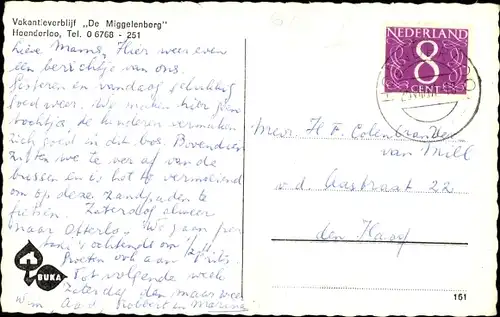 Vakantieverblijf „De Miggelenberg"
Hoenderloo, Tel. 0 6768 - 251
Lieve Mama, Hier weer even
een berichtje van ons.
Gisteren en vandaag gelukkig
goed weer. We maken hier geen
tochtjes, de kinderen vermaken
zich goed in dit bos. Bovendien
zitten we te ver af van de
bussen en is het te vermoeiend
om op deze zandpaden te
fietsen. Zaterdag alweer
naar Otterlo. We gaan per
taxi 's ochtends om
Groeten ook aan Frits.
Tot volgende week
Zaterdag dan maar weer
Wim, Robert en
BUKA
NEDERLAND
8
CENT
Mevr. H F. Colenbrander
van Mill
v. d. Aastraat 22
den Haag
161